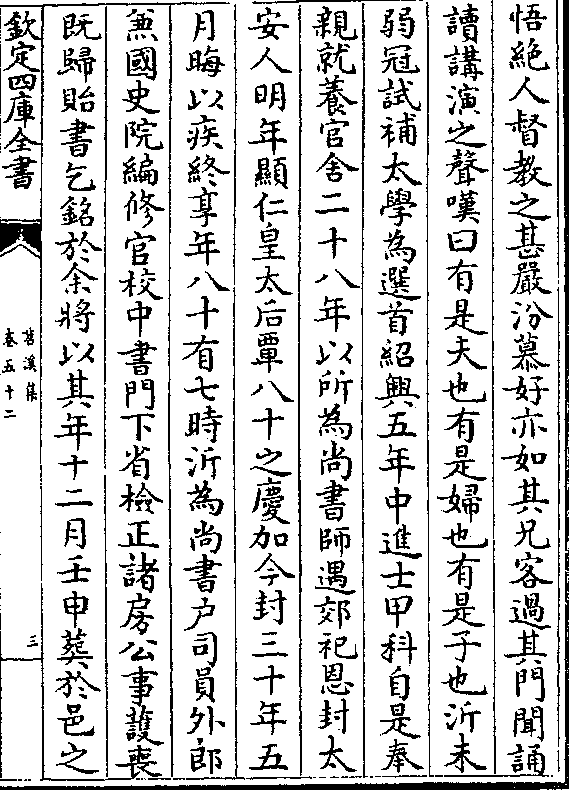 悟絶人督教之甚嚴汾慕好亦如其兄客過其門聞誦
讀講演之聲嘆曰有是夫也有是婦也有是子也沂未
弱冠試補太學為選首紹興五年中進士甲科自是奉
親就養官舍二十八年以所為尚書師遇郊祀恩封太
安人明年顯仁皇太后覃八十之慶加今封三十年五
月晦以疾終享年八十有七時沂為尚書户司員外郎
兼國史院編修官校中書門下省檢正諸房公事護喪
既歸貽書乞銘於余將以其年十二月壬申葬於邑之
欽定四庫全書
苕溪集
卷五十二
三